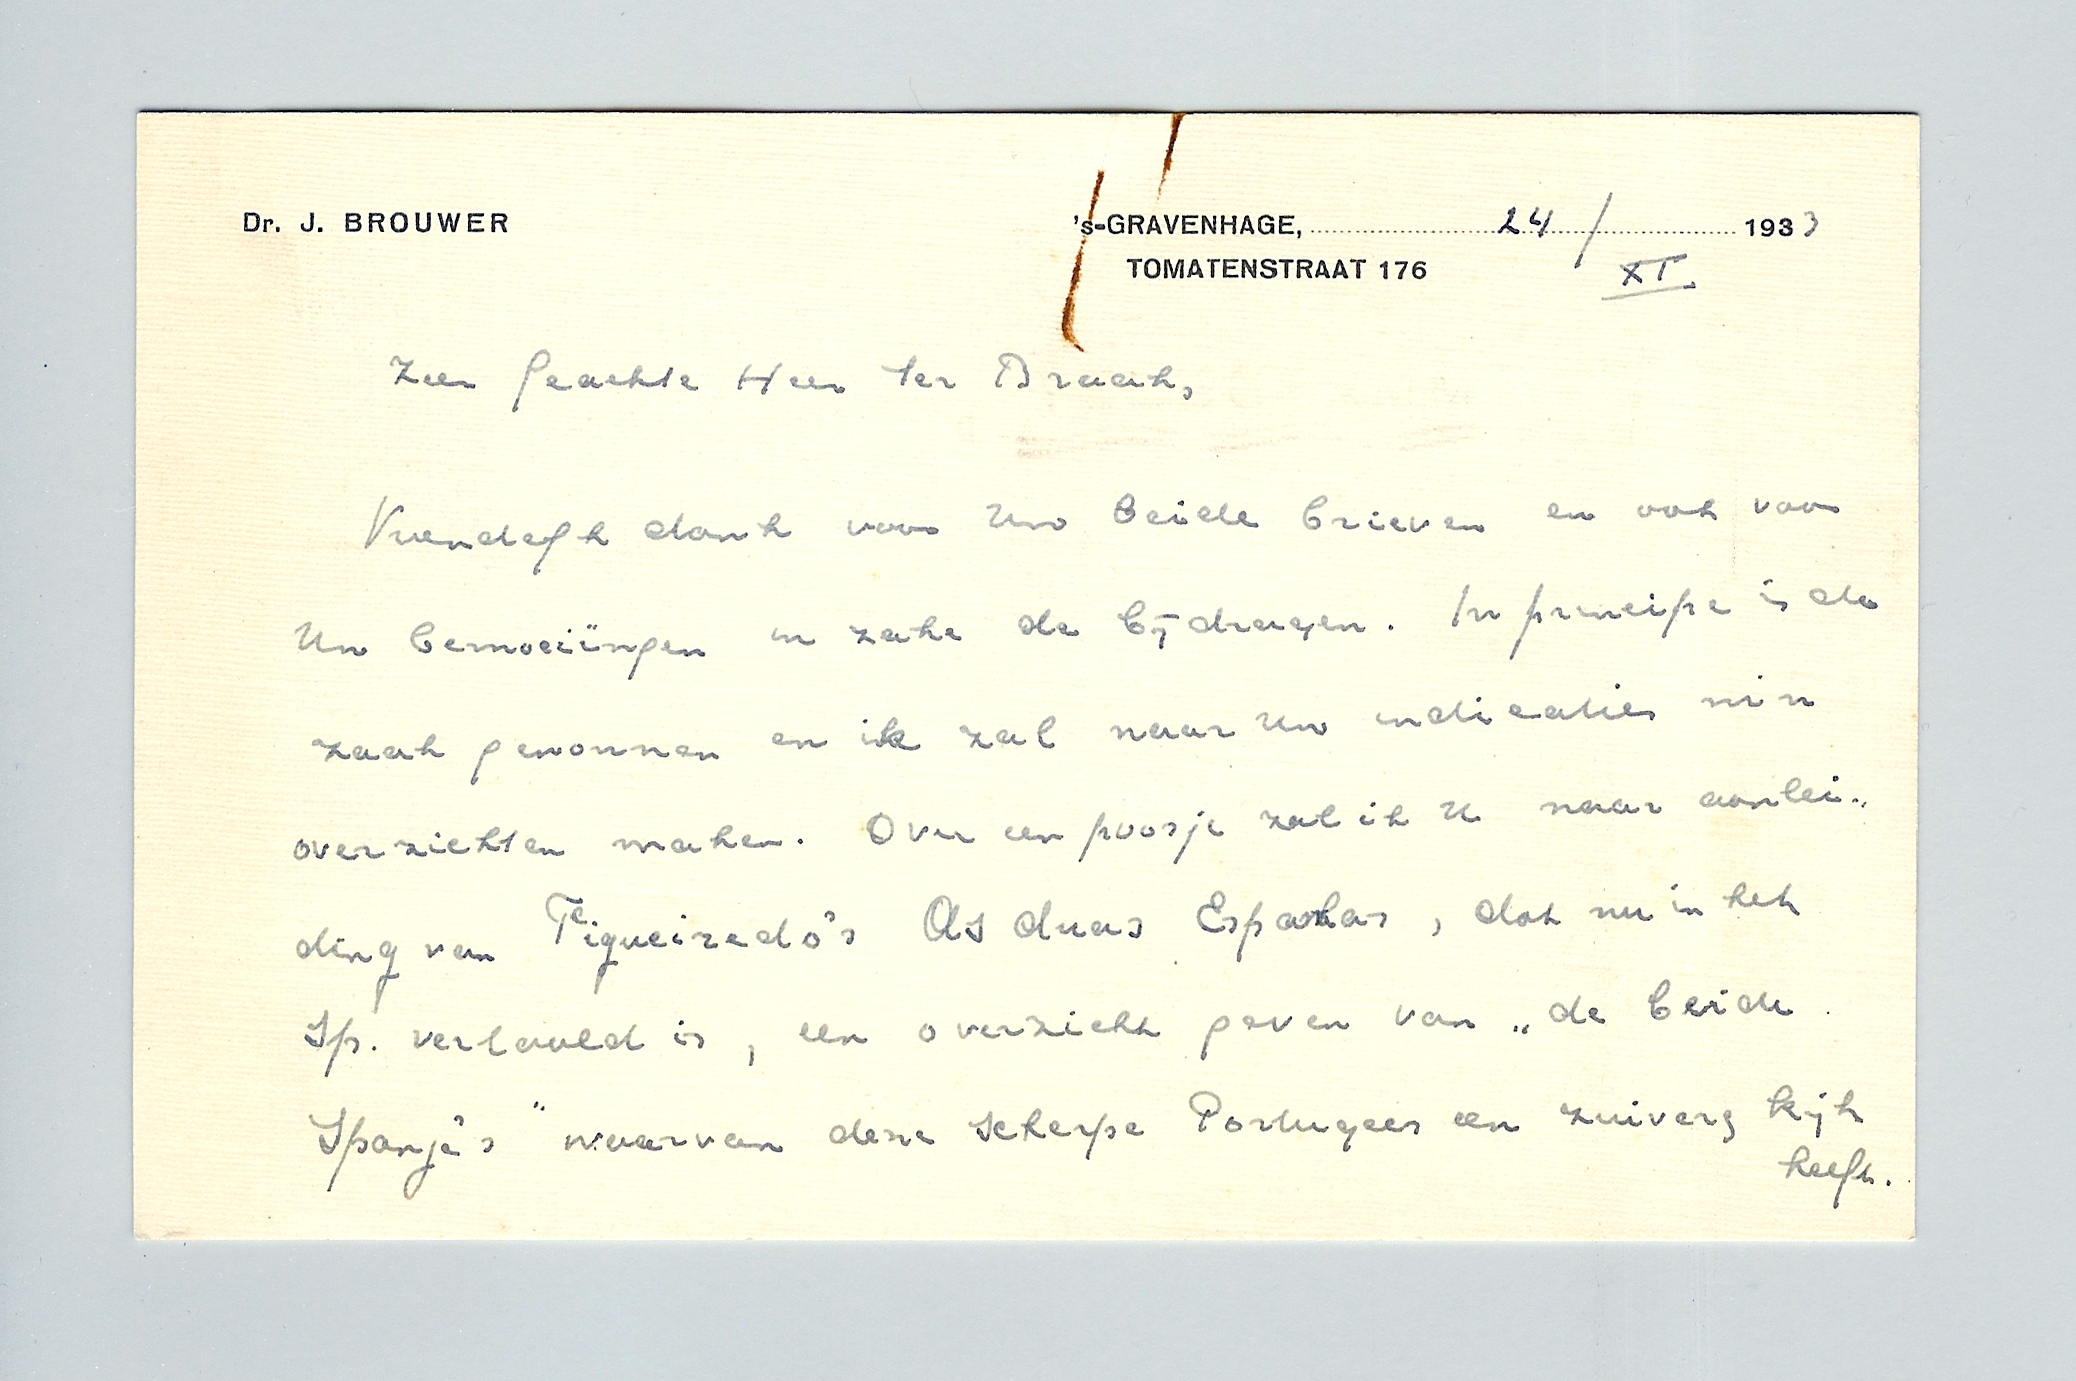 Dr. J. BROUWER
's-GRAVENHAGE, 24 / XI 1933
TOMATENSTRAAT 176
Zeer geachte Heer ter Braak,
Vriendelijk dank voor Uw beide brieven en ook voor
Uw bemoeiïngen in zake de bijdragen. In principe is de
zaak gewonnen en ik zal naar Uw indicaties mijn
overzichten maken. Over een poosje zal ik U naar aanlei„
ding van Figueiredo's As duas Espanhas, dat nu in het
Sp. vertaald is, een overzicht geven van „de beide
Spanje's" waarvan deze scherpe Portugees een zuivere kijk
heeft.